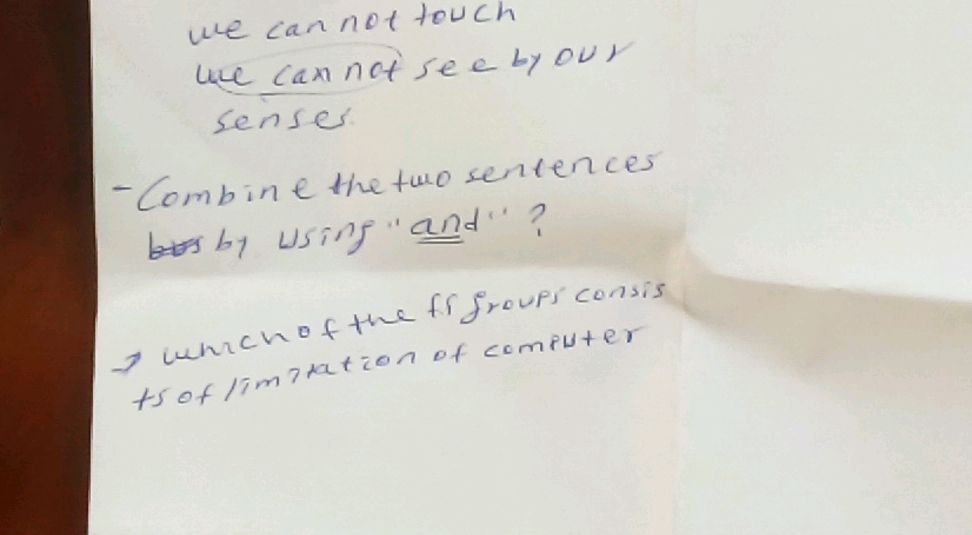 we can not touch
we can not see by our
senses.
- Combine the two sentences
by using "and" ?
→ which of the ff groups consis
ts of limitation of computer